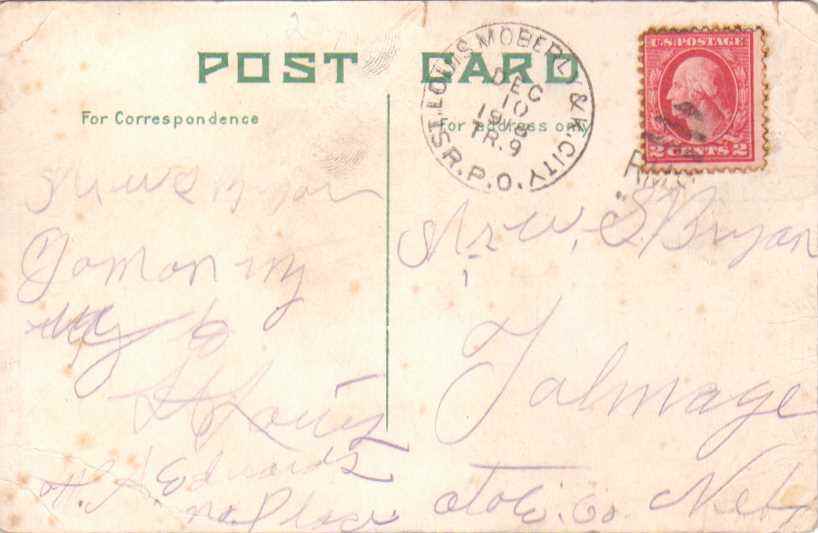 POST CARD
For Correspondence
For address only
ST. LOUIS, MOBERLY & K. CITY
R.P.O.
DEC
10
TR. 9
U.S. POSTAGE
2 CENTS 2
W. S. Bryan
Talmage
Otoe. Co. Neb
W S Bryan
on my
way to
St Louis
H. A. Edwards
no. Place